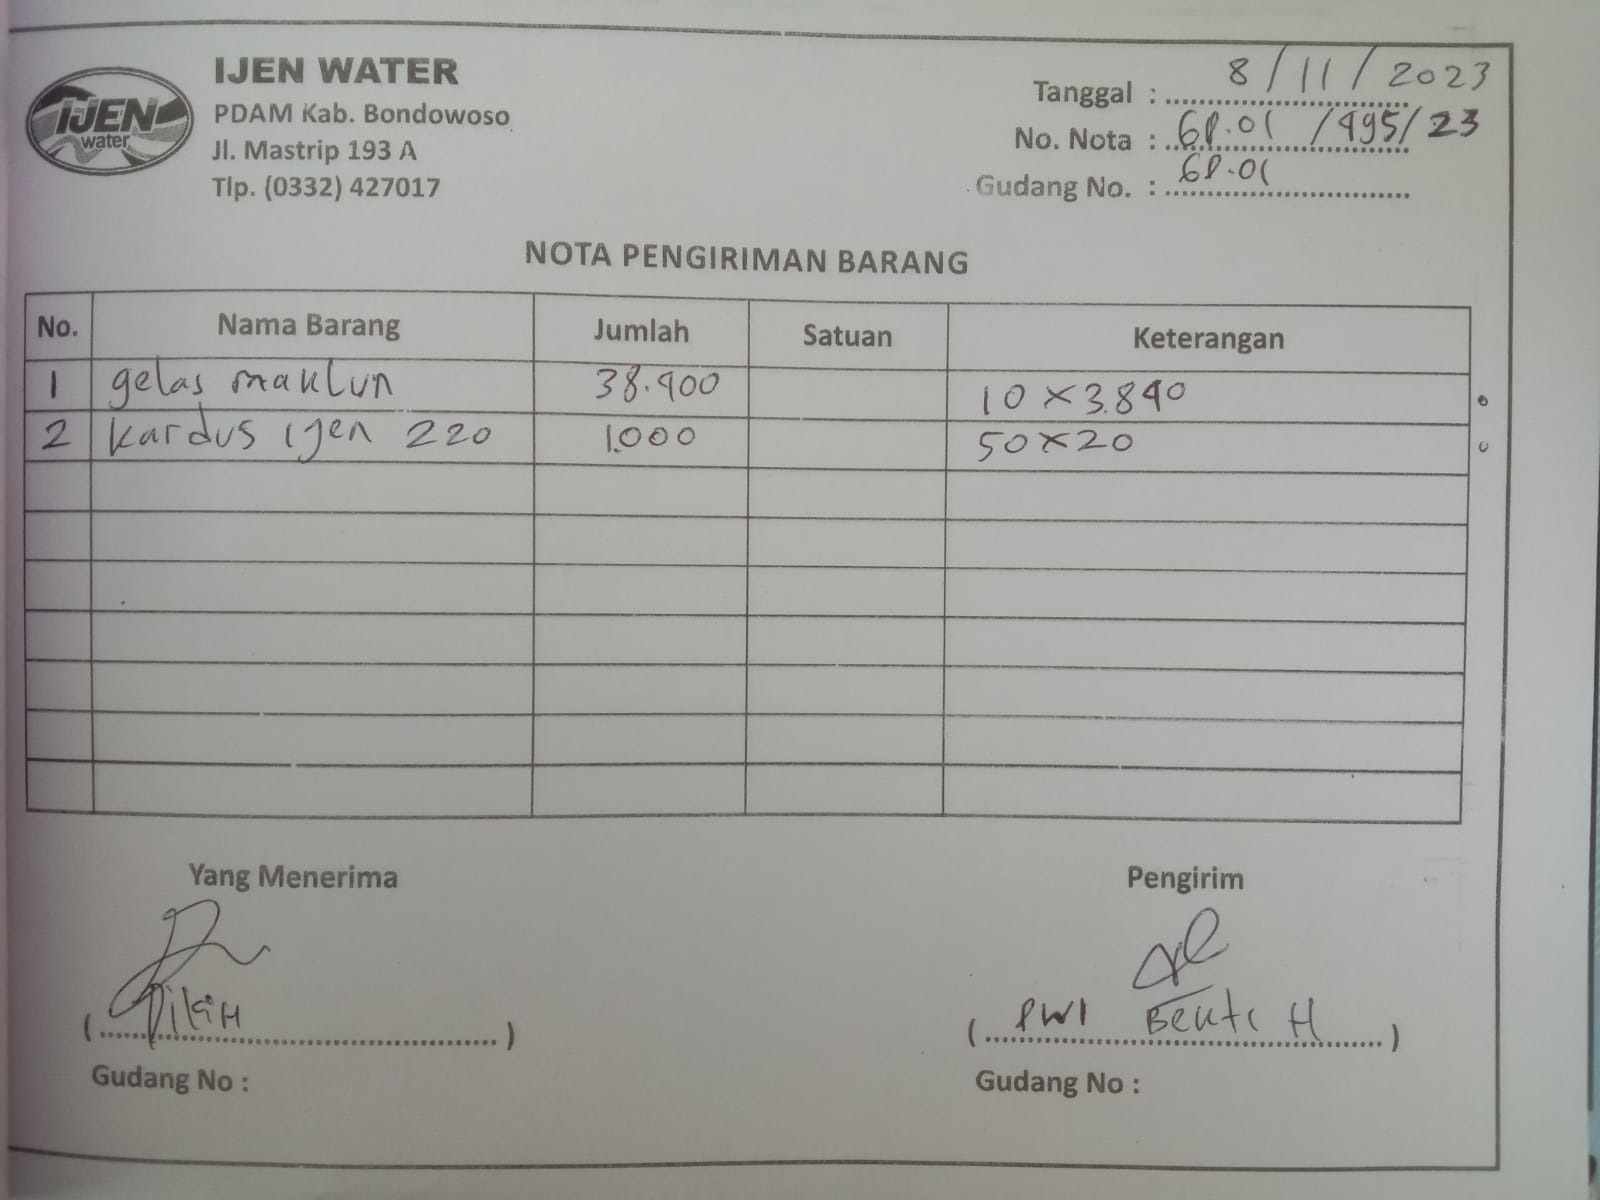 IJEN
water
IJEN WATER
PDAM Kab. Bondowoso
Jl. Mastrip 193 A
Tlp. (0332) 427017
Tanggal : 8/11/2023
No. Nota : 6P.01 /495/23
Gudang No. : 6P.01
NOTA PENGIRIMAN BARANG
No. Nama Barang Jumlah Satuan Keterangan
1 gelas maklun 38.400 10 x 3.840
2 kardus ijen 220 1.000 50 x 20
Yang Menerima Pengirim
( ) ( DWI H )
Gudang No : Gudang No :